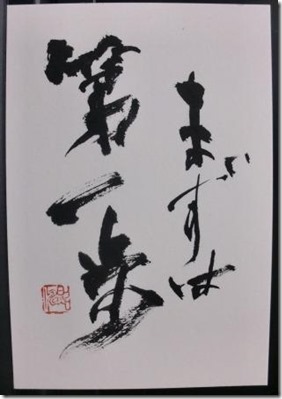 まずは
第一歩